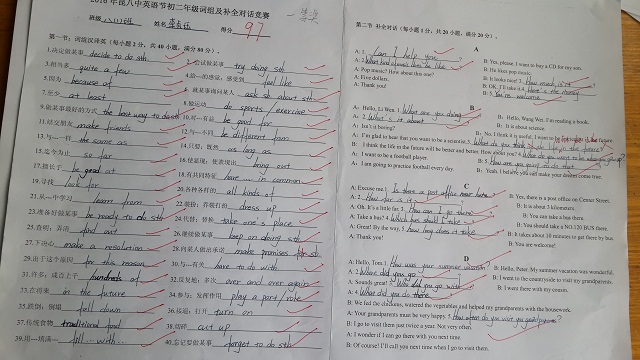 2016年昆八中英语节初二年级词组及补全对话竞赛
一等奖
班级 八(1)班 姓名 得分 97
第一节：词组汉译英（每小题2分，共40小题，满分80分）。
1.决定做某事 decide to do sth 2. 尝试做某事 try doing sth
3.相当多 quite a few 4.给…的感觉；感受到 feel like
5.因为 because of 6.就某事询问某人 ask sb about sth
7.至少 at least 8.做运动 do sports / exercise
9.做某事最好的方式 the best way to do sth 10.对…有益 be good for
11.结交朋友 make friends 12.与…不同 be different from
13.与…一样 the same as 14.只要；既然 as long as
15.迄今为止 so far 16.使显现；使表现出 bring out
17.擅长于 be good at 18.有共同特征 have … in common
19.寻找 look for 20.各种各样的 all kinds of
21.从…中学习 learn from 22.装扮；乔装打扮 dress up
23.准备好做某事 be ready to do sth 24.代替；替换 take one's place
25.查明；弄清 find out 26.继续做某事 keep on doing sth
27.下决心 make a resolution 28.向某人做出承诺 make promises to sb
29.由于这个原因 for this reason 30.与…有关 have to do with
31.许多；成百上千 hundreds of 32.反复地；多次 over and over again
33.在将来 in the future 34.参与；发挥作用 play a part / role
35.跌倒；倒塌 fall down 36.接通；打开 turn on
37.传统食物 traditional food 38.切碎 cut up
39.用…填满 fill … with … 40.忘记要做某事 forget to do sth
第二节 补全对话（每小题1分，共20小题，满分20分）。
A
A: 1. Can I help you ? B: Yes, please. I want to buy a CD for my son.
A: 2. What kind of music does he like B: He likes pop music.
A: Pop music? How about this one? B: It looks nice! 3. How much is it
A: Five dollars. B: OK, I'll take it. 4. Here's the money
A: Thank you! B: 5. You're welcome
B
A: Hello, Li Wen. 1. What are you doing B: Hello, Wang Wei. I'm reading a book.
A: 2. What's it about B: It is about science.
A: Isn't it boring? B: No, I think it is useful. I want to be
A: I'm glad to hear that you want to be a scientist. 3. What do you think life in the future?
B: I think the life in the future will be better and better. How about you? 4. What do you want to be when you grow up?
A: I want to be a football player. B: 5. How are you going to do that
A: I am going to practice football every day. B: Yeah. I believe you can make your dream come true.
C
A: Excuse me. 1. Is there a post office near here B: Yes, there is a post office on Center Street.
A: 2. How far is it B: It is about 3 kilometers.
A: Oh. It's a little far. 3. How can I go there B: You can take a bus there.
A: Take a bus? 4. Which bus should I take B: You should take a NO.120 BUS there.
A: Great! By the way, 5. how long does it take B: It takes about 10 minutes to get there by bus.
A: Thank you! B: You are welcome!
D
A: Hello, Tom. 1. How was your summer vacation B: Hello, Peter. My summer vacation was wonderful.
A: 2. Where did you go B: I went to the countryside to visit my grandparents.
A: Sounds great! 3. Who did you go with B: I went there with my cousin.
A: 4. What did you do there
B: We fed the chickens, watered the vegetables and helped my grandparents with the housework.
A: Your grandparents must be very happy. 5. How often do you visit your grandparents?
B: I go to visit them just twice a year. Not very often.
A: I wonder if I can go there with you next time.
B: Of course! I'll call you next time when I go to visit them.